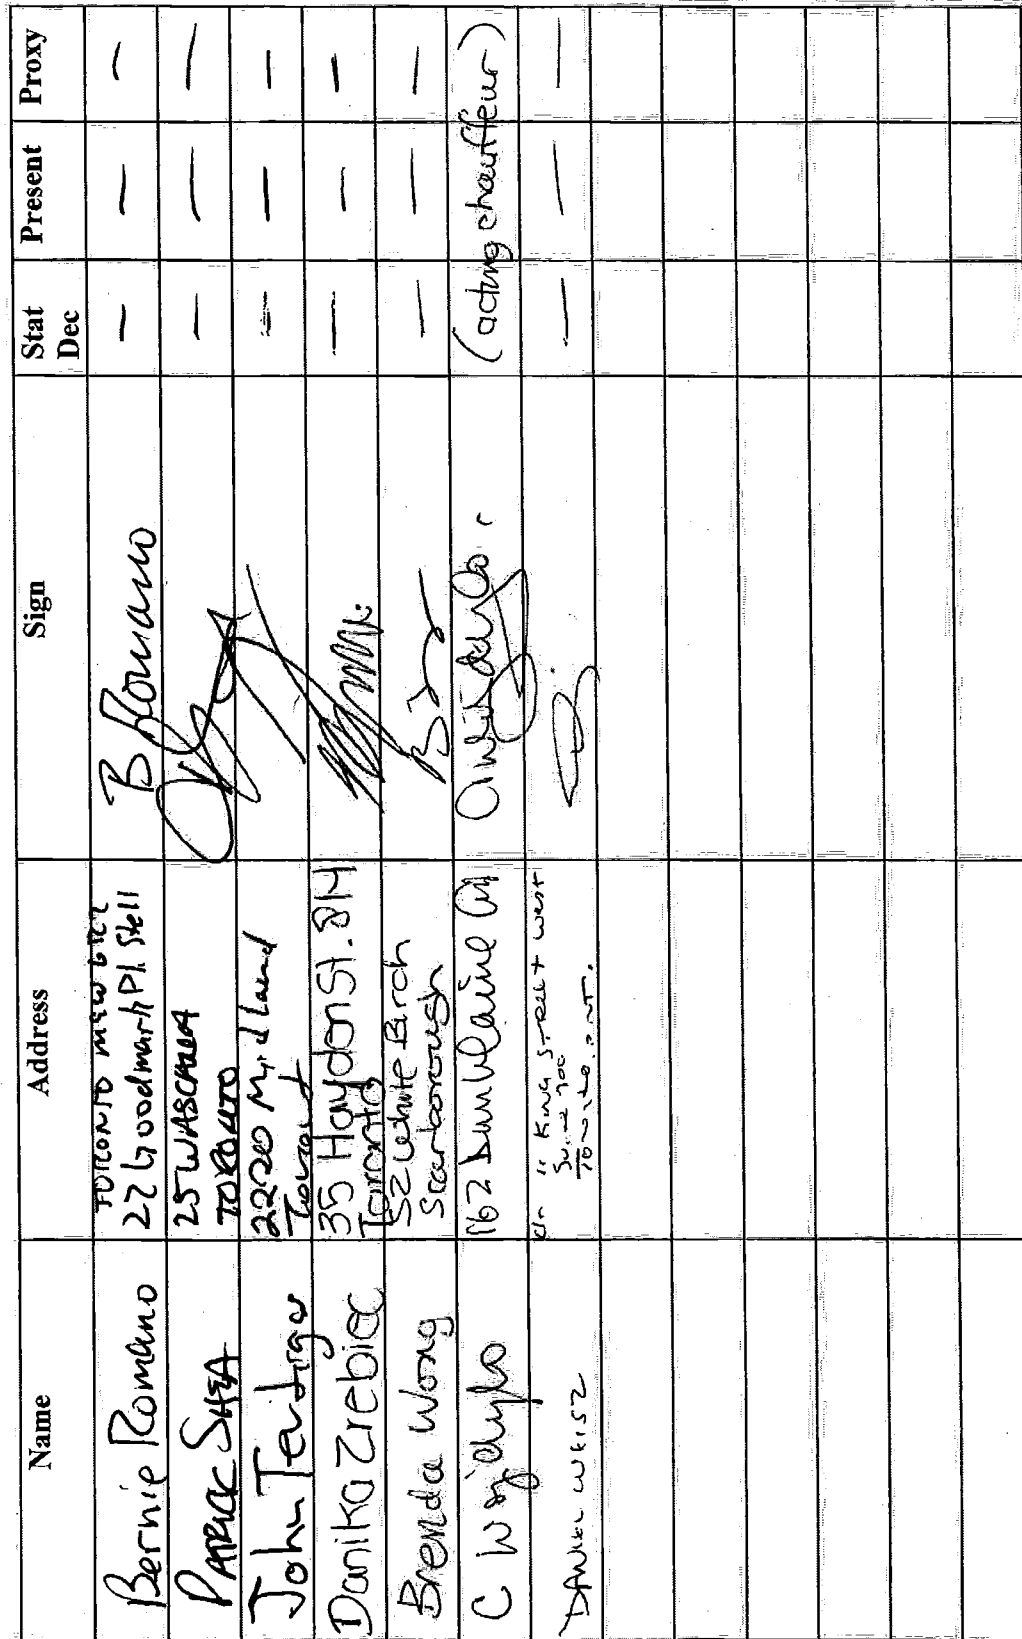 Name Address Sign Stat Dec Present Proxy
Bernie Romano TORONTO M9W 6R2 B Romano — — —
22 Goodmark Pl. Ste 11
PATRICK SHEA 25 WASCANA — — —
TORONTO
John 2220 Midland — — —
Danika Zrebiec 35 Haydon St. — — —
Toronto
Brenda Wong 52 White Birch — — —
Scarborough
C Wojdylo 162 Dunblaine (acting chauffeur)
DANIEL WEISZ 11 King Street West — — —
Suite 700
Toronto, ONT.